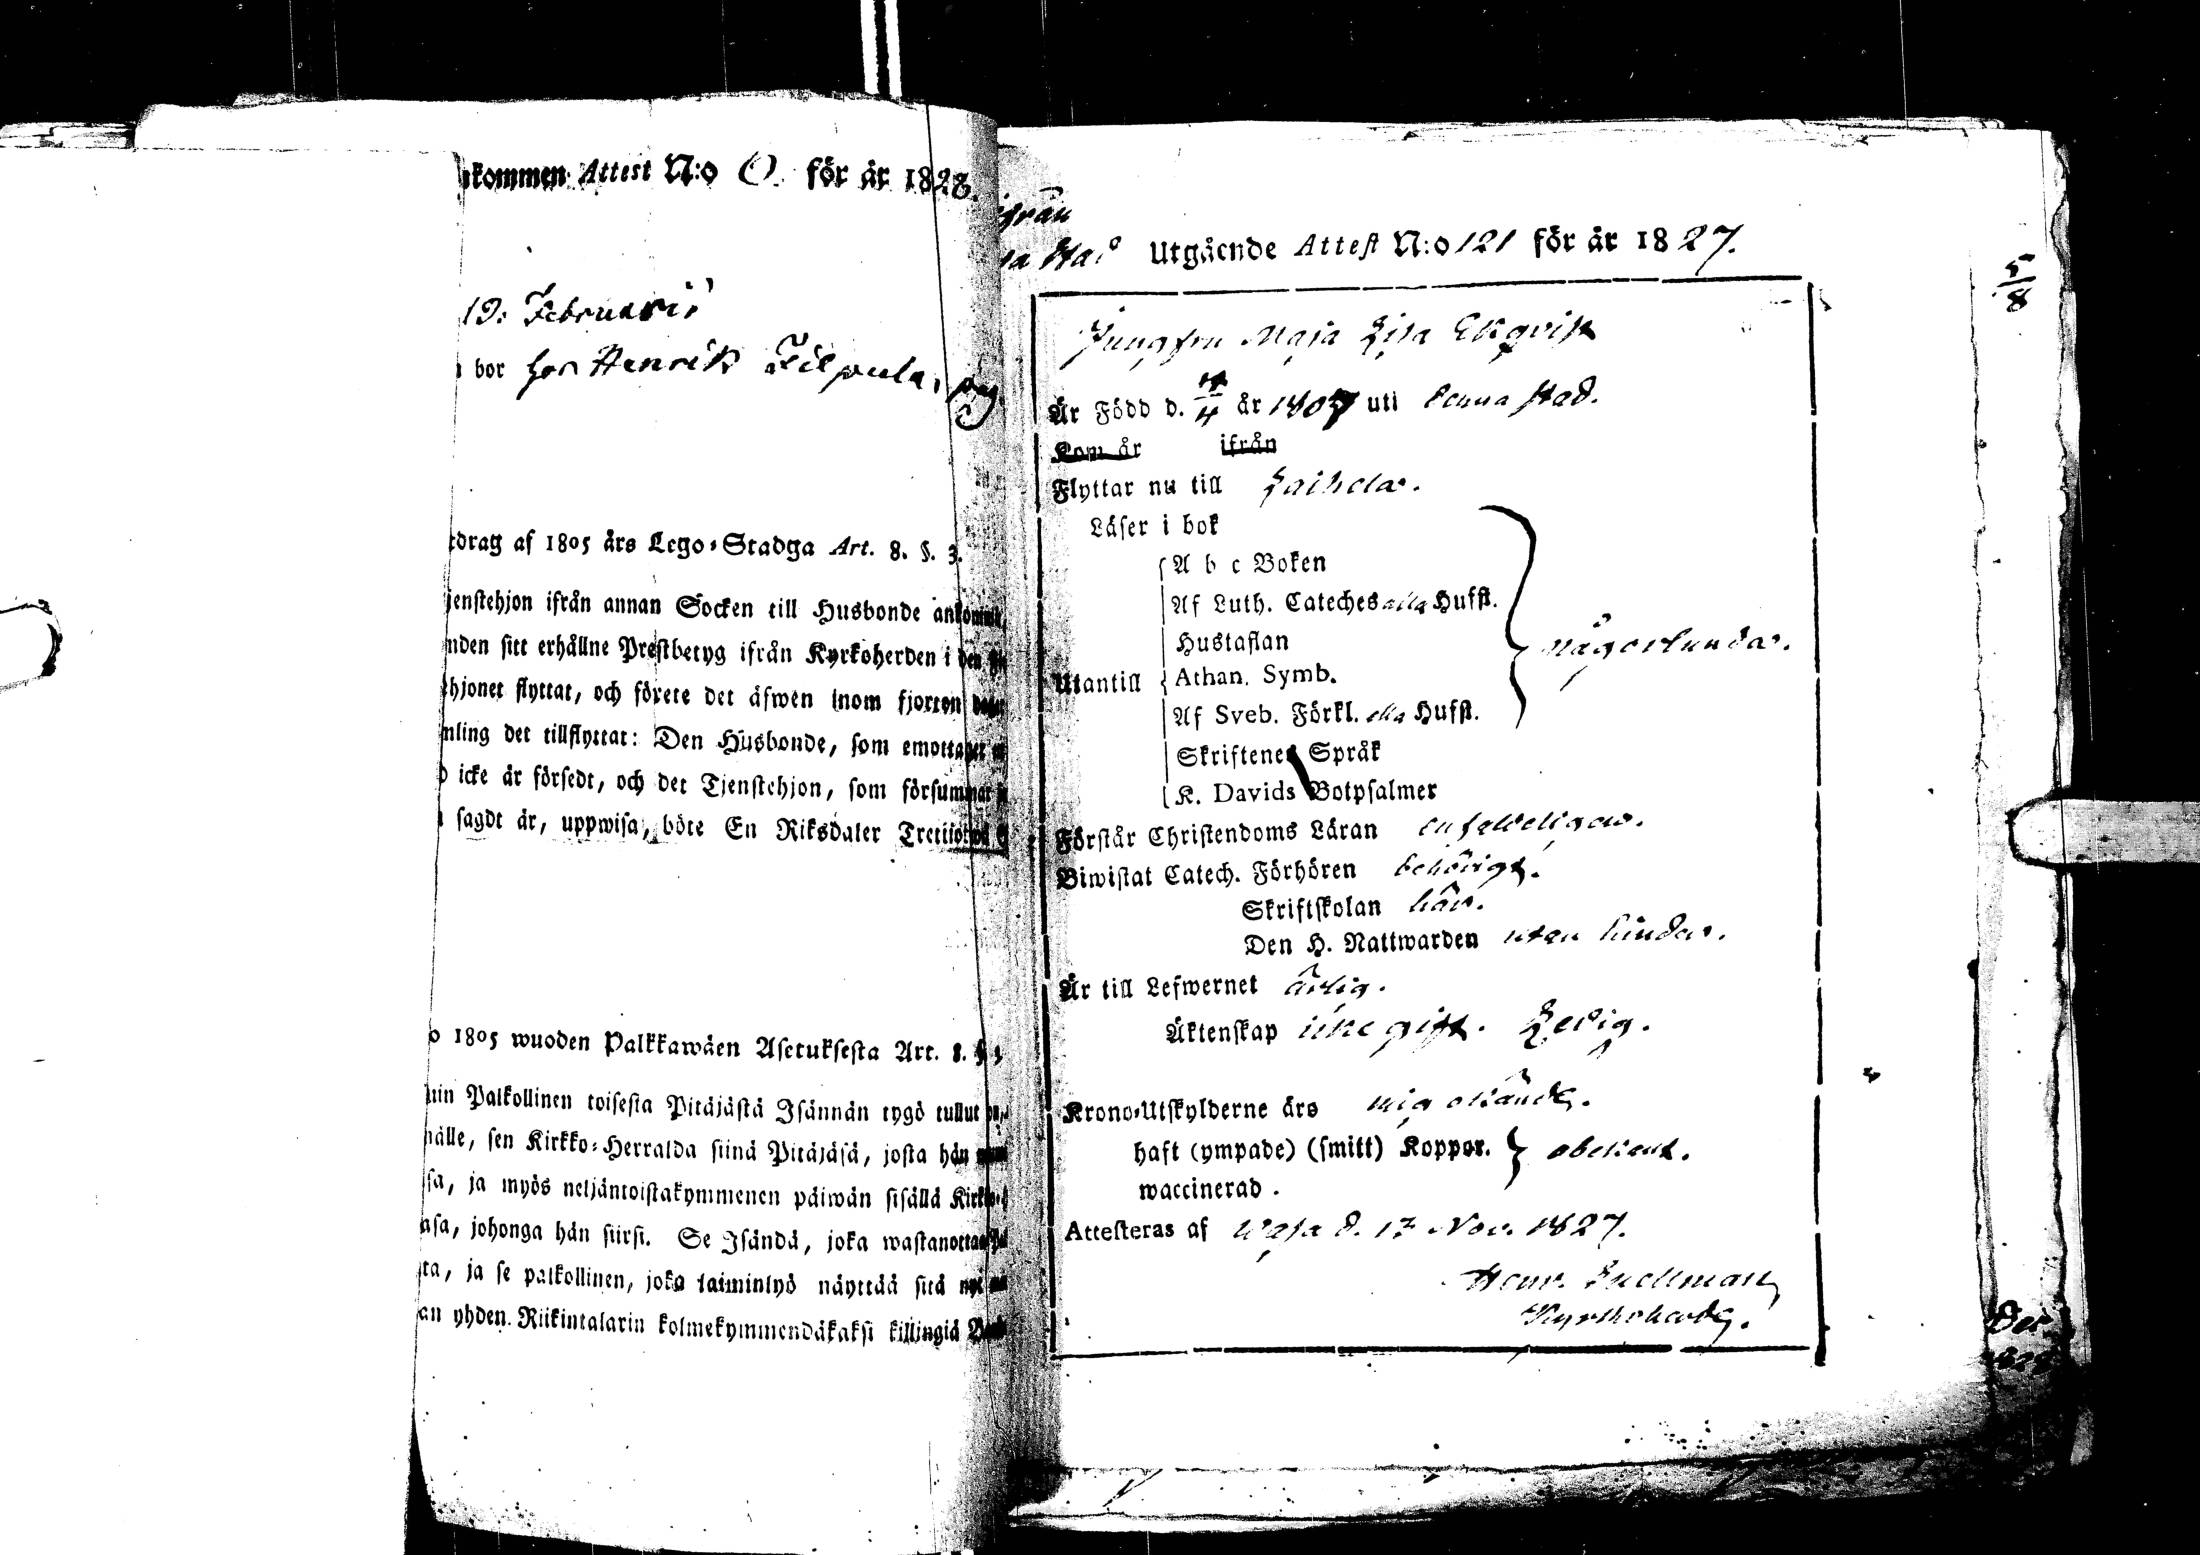 kommen Attest N:o 0. för år 1828.
19: Februarii
bor hos Henrik Filpula,
drag af 1805 års Lego-Stadga Art. 8. §. 3.
jenstehjon ifrån annan Socken till Husbonde
nden sitt erhållne Prestbetyg ifrån Kyrkoherden i den
hjonet flyttat, och förete det äfwen inom fjorton
mling det tillflyttat: Den Husbonde, som emottager
icke är försedt, och det Tjenstehjon, som försummar
sagdt är, uppwisa, böte En Riksdaler Trettiotwå
o 1805 wuoden Palkkawäen Asetuksesta Art. 8. §. 3
uin Palkollinen toisesta Pitäjästä Isännän tygö tullut
hälle, sen Kirkko-Herralda siinä Pitäjäsä, josta hän
sa, ja myös neljäntoistakymmenen päiwän sisällä
asa, johonga hän siirsi. Se Isändä, joka wastanottaa
ta, ja se palkollinen, joka laiminlyö näyttää sitä
an yhden Riikintalarin kolmekymmendäkaksi killingiä
ifrån
Stad Utgående Attest N:o 121 för år 1827.
Jungfru Maja Lisa Ekqvist
Är Född d. år 1807 uti denna stad.
Kom år ifrån
Flyttar nu till Laihela.
Läser i bok
A b c Boken
Af Luth. Cateches alla Hufst.
Hustaflan
Utantill Athan. Symb. någorlunda.
Af Sveb. Förkl. alla Hufst.
Skriftenes Språk
K. Davids Botpsalmer
Förstår Christendoms Läran enfaldeligen.
Biwistat Catech. Förhören behörigt.
Skriftskolan här.
Den H. Nattwarden utan hinder.
Är till Lefwernet ärlig.
Äktenskap icke gift. Ledig.
Krono-Utskylderne års mig okändt.
haft (ympade) (smitt) Koppor. obekant.
waccinerad.
Attesteras af Wasa d. 17 Nov. 1827.
Henr. Snellman
Kyrkoherde.
5/8